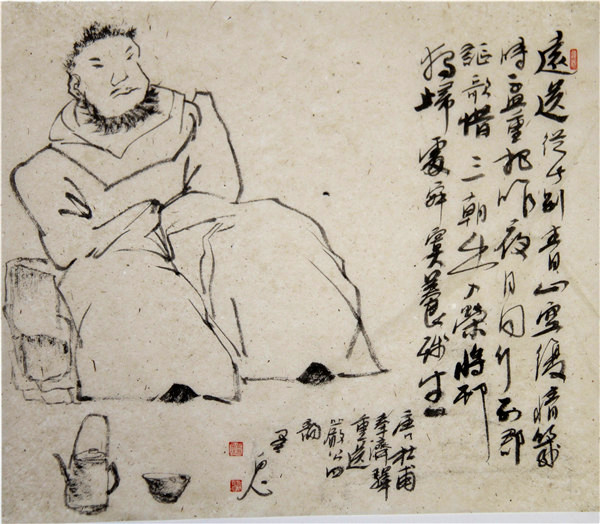 遠送從此別青山空復情幾
時盃重把昨夜月同行列郡
謳歌惜三朝出入榮將邨
獨歸處寂寞養殘生
唐人杜甫
奉濟驛
重送
嚴公四
韻